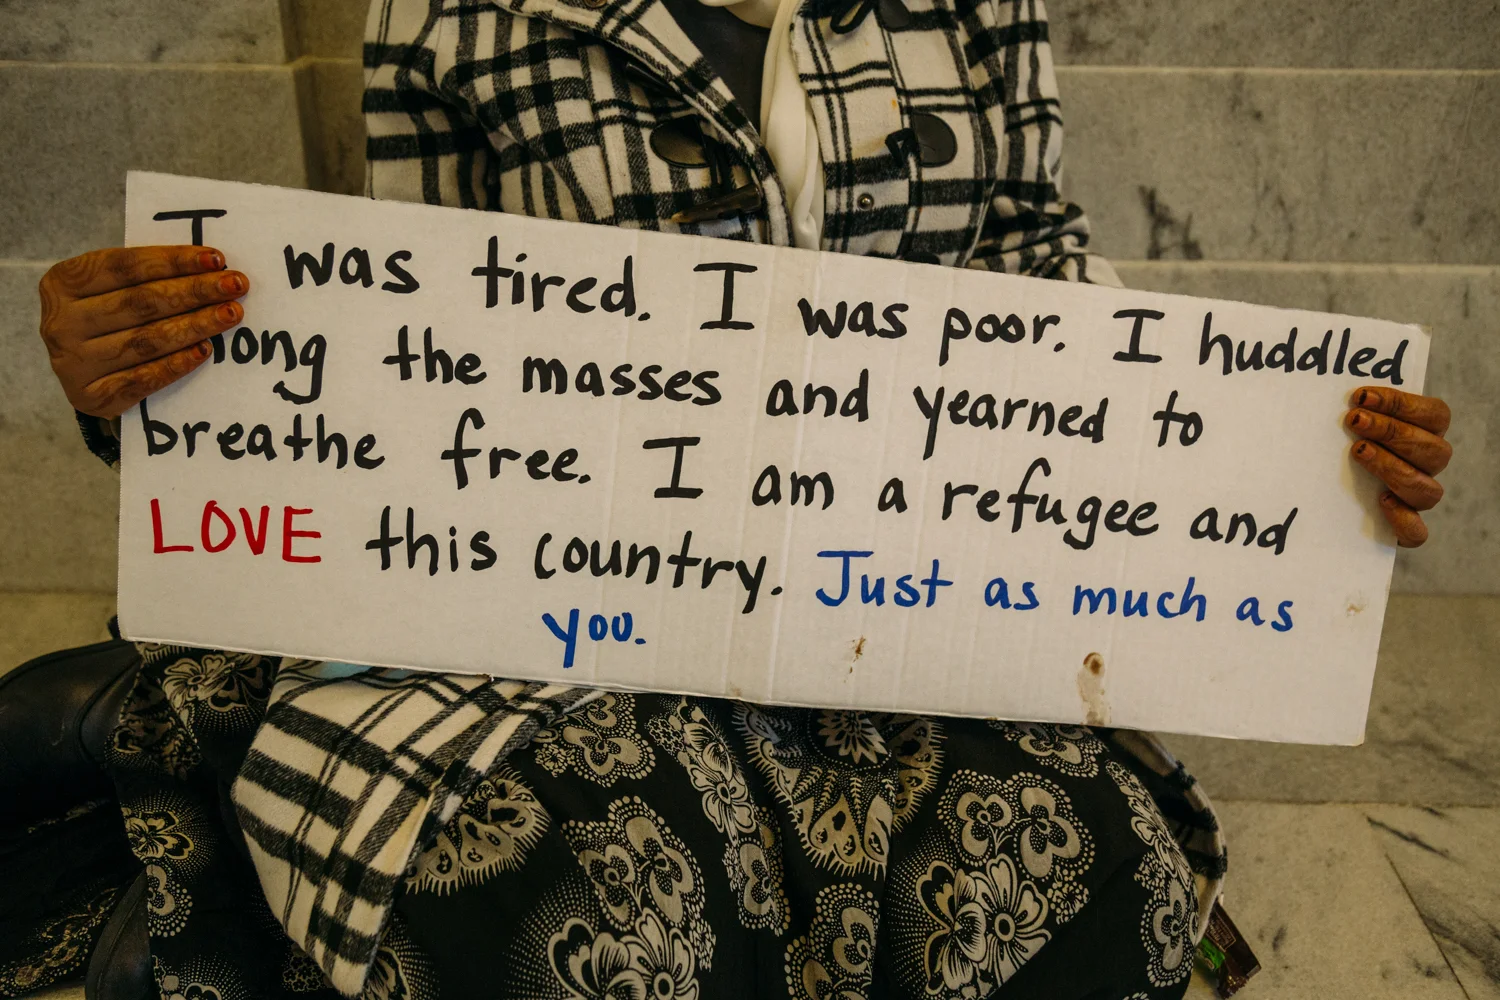 I was tired. I was poor. I huddled
among the masses and yearned to
breathe free. I am a refugee and
LOVE this country. Just as much as
you.